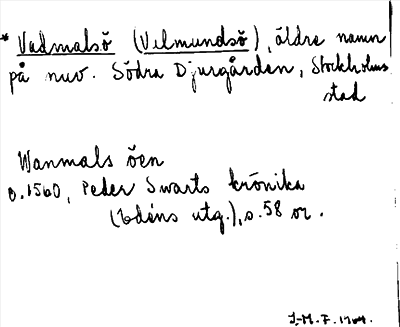 * Vadmalsö (Vilmundsö), äldre namn
på nuv. Södra Djurgården, Stockholms
stad
Wanmals öen
o. 1560, Peder Swarts krönika
(Edéns utg.), s. 58 or.
J.-M. F.